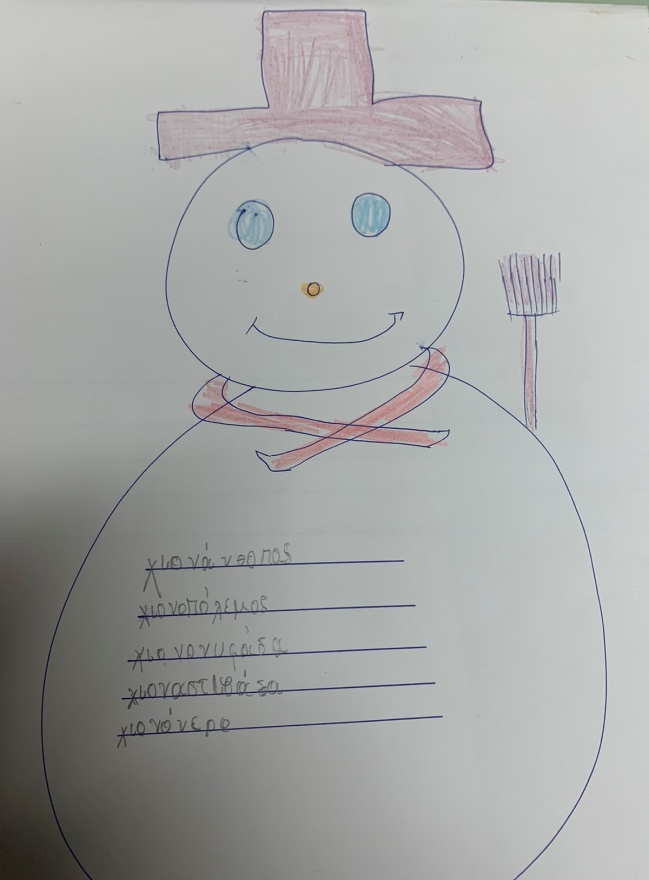 χιονάνθοπος
χιονοπόλεμος
χιονονυφάδα
χιοναστιβάδα
χιονόνερο